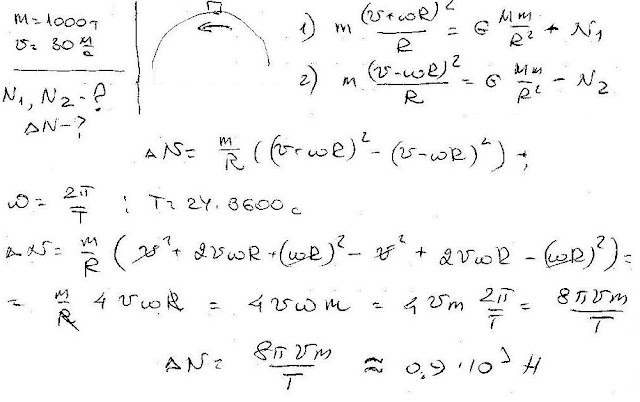 m = 1000т
v = 30 м/с
N₁, N₂ - ?
ΔN - ?
1) m (v+ωR)²/R = G Mm/R² + N₁
2) m (v-ωR)²/R = G Mm/R² - N₂
ΔN = m/R ((v+ωR)² - (v-ωR)²) ;
ω = 2π/T ; T = 24·3600 c
ΔN = m/R (v² + 2vωR + (ωR)² - v² + 2vωR - (ωR)²) =
= m/R 4vωR = 4vωm = 4vm 2π/T = 8πvm/T
ΔN = 8πvm/T ≈ 0,9·10³ H